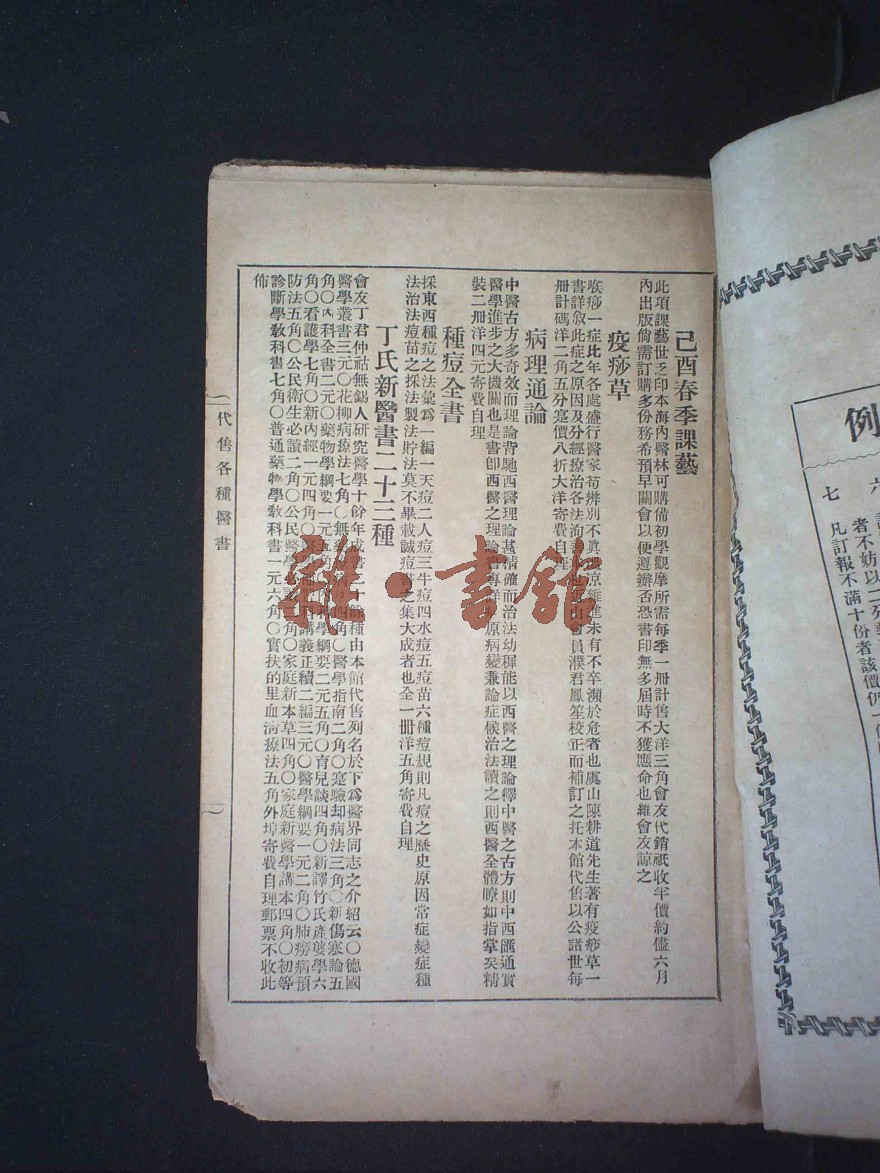 己酉春季課藝
此項課藝世乏印本海內醫林可購備初學觀摩所需每季一册計售大洋三角會友代銷祇收半價約儘六月
內出版倘需訂購多份務希預早關會以便遵辦否恐書印無多屆時不獲應命也維會友諒之
疫痧草
喉痧一症比年各處盛行醫家苟辨別不眞
未有不卒瀕於危者也虞山陳耕道先生著有疫痧草一
書詳敘此症之原因及分經療治各法洵
由會員濮君鳳笙校正而補訂之托本館代售以公諸世每
册計碼洋二角五分寔價八折大洋寄費自理
病理通論
中醫古方多奇效而理論背馳西醫理論甚精確而治法幼穉能以西醫之理論釋中醫之古方則中西匯通實
醫學進步之大機關也是書卽西醫之理論書專詳
原病變兼論症候治法讀之則西醫全體瞭如指掌矣精
裝二册洋四元寄費自理
種痘全書
採東西種痘之法彙爲一編一天痘二人痘三牛痘四水痘五痘苗六種痘規則凡痘之歷史原因常症變症種
法治法痘苗之採法製法貯法莫不畢載誠痘書之集大成者也全一册洋五角寄費自理
丁氏新醫書二十三種
會友丁君仲祜無錫人研究醫學十餘年成書二十餘種由本館代售列名於下爲醫界同志之介紹云〇德國
醫學叢書三元〇花柳病療法七角〇無
四角〇醫學指南二角〇寔驗却病法三角〇新傷寒論五
角〇內科全書二元〇藥物學綱要一元五角
科學綱要二元五角〇育兒談四角〇新譯竹氏產婆學六
角〇看護學七角〇新內經一元四角〇
科講義正續二編三元〇醫學綱要一元二角〇肺癆病預
防法五角〇公民衛生必讀二角〇公民醫學必
二角〇家庭新本草四角〇家庭新醫學講本四角〇初等
診斷學敎科書七角〇普通藥物學敎科書一元六角〇實扶的里血淸療法五角外埠寄費自理郵票不收此
佈
代售各種醫書
雜·書館
例
六
七
者不妨以二
凡訂報不滿十份者該價仍